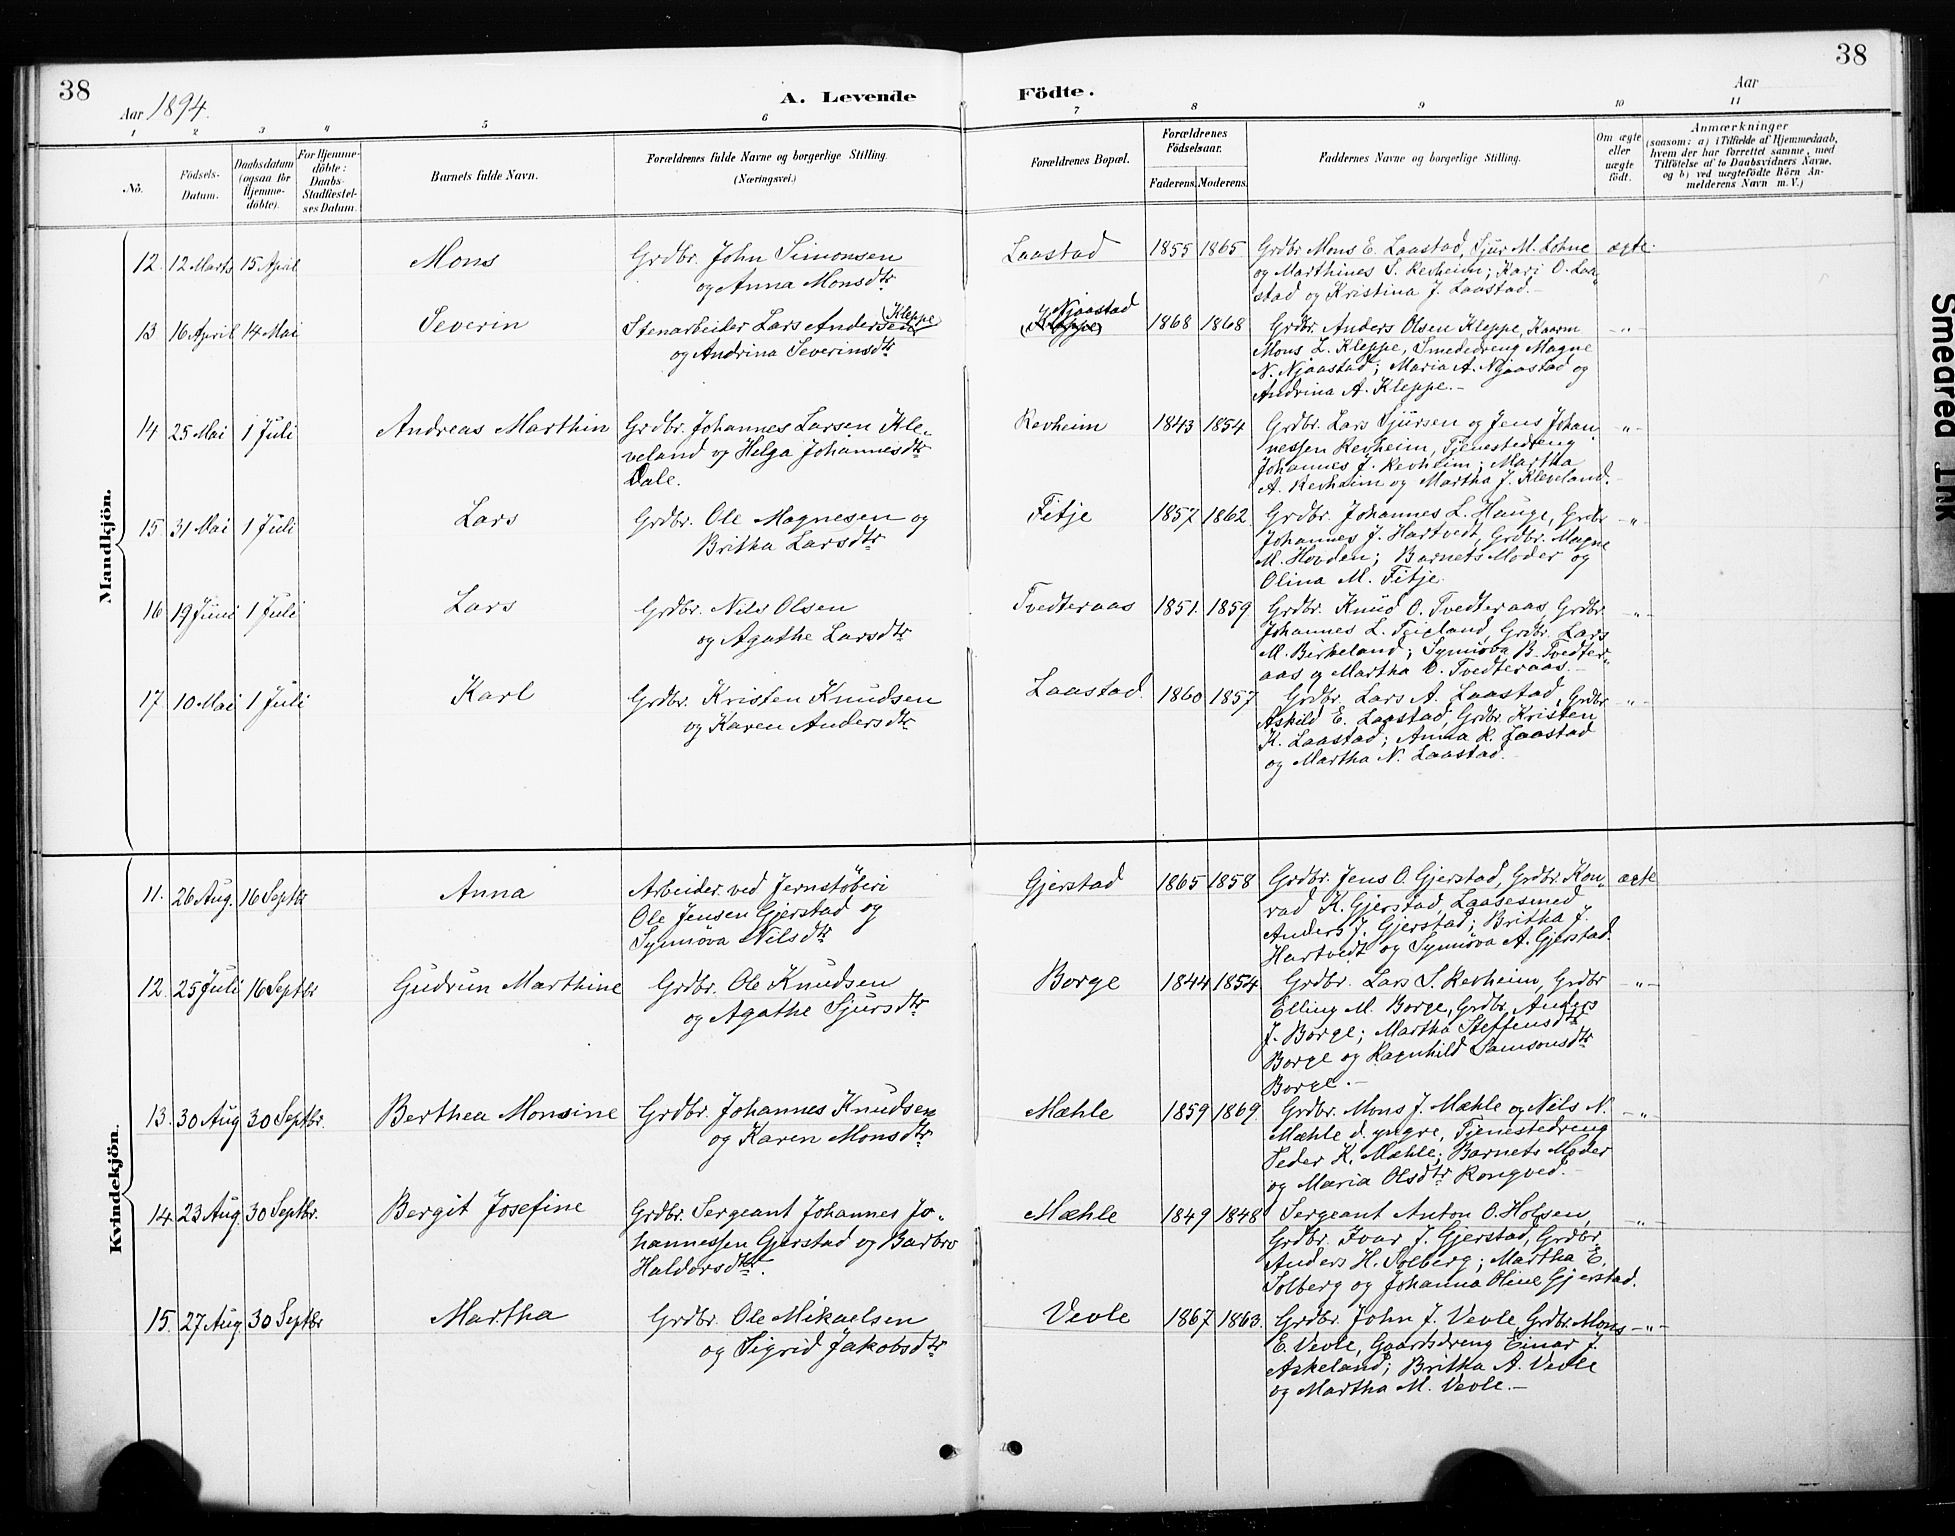 38
38
Aar 1894.
A. Levende Födte.
Aar
1 2 3 4 5 6 7 8 9 10 11
No.
Födsels-Datum.
Daabsdatum (ogsaa for Hjemme-döbte).
For Hjemme-döbte: Daabs-Stadfæstelses Datum.
Barnets fulde Navn.
Forældrenes fulde Navne og borgerlige Stilling.
(Næringsvei.)
Forældrenes Bopæl.
Forældrenes Födselsaar.
Faderens. Moderens.
Faddernes Navne og borgerlige Stilling.
Om ægte eller uægte födt.
Anmærkninger
(saasom: a) i Tilfælde af Hjemmedaab,
hvem der har forrettet samme, med
Tilföielse af to Daabsvidners Navne,
og b) ved uægtefödte Börn An-
melderens Navn m. V.)
Mandkjön.
12. 12 Marts 15 April Mons Grdbr. John Simonsen Laastad 1855 1865 Grdbr Mons E. Laastad, Sjur M. Lohne ægte.
og Anna Monsdtr og Marthines S. Revheim; Kari O. Laa-
stad og Kristina J. Laastad.-
13 16 April 14 Mai Severin Stenarbeider Lars Andersen (Kleppe) Njaastad (Kleppe) 1868 1868 Grdbr. Anders Olsen Kleppe, Kaarm -"-
og Andrina Severinsdtr Mons L. Kleppe, Smededreng Magne
N. Njaastad; Maria A. Njaastad og
Andrina A. Kleppe.-
14 25 Mai 1 Juli Andreas Marthin Grdbr. Johannes Larsen Kle- Revheim 1843 1854 Grdbr. Lars Sjursen og Jens Johan- -"-
veland og Helga Johannesdtr nessen Revheim, Tjenestedreng
Dale. Johannes J. Revheim; Martha
A. Revheim og Martha J. Kleveland.-
15 31 Mai 1 Juli Lars Grdbr. Ole Magnesen og Fitje 1857 1862 Grdbr. Johannes L. Hauge, Grdbr -"-
Britha Larsdtr Johannes J. Hartvedt, Grdbr. Magne
M. Hovden; Barnets Moder og
Olina M. Fitje.
16 19 Juni 1 Juli Lars Grdbr. Nils Olsen Tvedteraas 1851. 1859. Grdbr. Knud O. Tvedteraas, Grdbr. -"-
og Agathe Larsdtr Johannes L. Teigland, Grdbr. Lars
M. Birkeland; Synnöva B. Tvedter-
aas og Martha O. Tvedteraas.-
17 10 Mai 1 Juli Karl Grdbr. Kristen Knudsen Laastad. 1860 1857 Grdbr. Lars A. Laastad, Grdbr -"-
og Karen Andersdtr Askild E. Laastad, Grdbr. Kristen
K. Laastad; Anna K. Laastad
og Martha N. Laastad.-
Kvindekjön.
11. 26 Aug. 16 Septbr Anna Arbeider ved Jernstöberi Gjerstad 1865 1858 Grdbr. Jens O. Gjerstad, Grdbr. Kon- ægte
Ole Jensen Gjerstad og rad K. Gjerstad, Laasesmed
Synnöva Nilsdtr Anders J. Gjerstad; Britha J.
Hartvedt og Synnöva A. Gjerstad.
12. 25 Juli 16 Septbr Gudrun Marthine Grdbr. Ole Knudsen Borge 1844 1854. Grdbr. Lars S. Revheim, Grdbr -"-
og Agathe Sjursdtr Elling M. Borge, Grdbr. Anders
J. Borge; Martha Steffensdtr
Borge og Ragnhild Samsonsdtr
Borge.-
13. 30 Aug 30 Septbr. Berthea Monsine Grdbr. Johannes Knudsen Mæhle 1859 1869. Grdbr. Mons J. Mæhle og Nils N. -"-
og Karen Monsdtr Mæhle d. yngre, Tjenestedreng
Peder K. Mæhle; Barnets Moder
og Maria Olsdtr Rongved.-
14. 23 Aug 30 Septbr. Bergit Josefine Grdbr. Sergeant Johannes Jo- Mæhle 1849 1848 Sergeant Anton O. Holsen, -"-
hannessen Gjerstad og Barbro Grdbr. Ivar J. Gjerstad, Grdbr.
Haldorsdtr. Anders H. Solberg; Martha E.
Solberg og Johanna Oline Gjerstad.
15. 27 Aug. 30 Septbr Martha Grdbr. Ole Mikaelsen Vevle 1867 1863. Grdbr. John J. Vevle, Grdbr. Mons -"-
og Sigrid Jakobsdtr E. Vevle, Gaardsdreng Einar J.
Askeland; Britha A. Vevle
og Martha M. Vevle.-
Smeared Ink